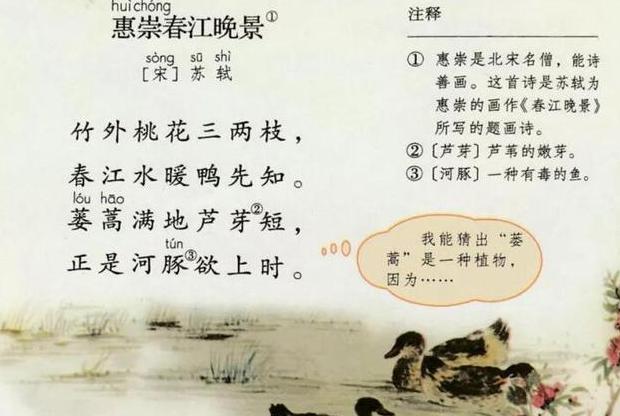 huì chóng
惠崇春江晚景①
sòng sū shì
［宋］苏轼
竹外桃花三两枝，
春江水暖鸭先知。
lóu hāo
蒌蒿满地芦芽②短，
tún
正是河豚③欲上时。
注释
① 惠崇是北宋名僧，能诗
善画。这首诗是苏轼为
惠崇的画作《春江晚景》
所写的题画诗。
②〔芦芽〕芦苇的嫩芽。
③〔河豚〕一种有毒的鱼。
我能猜出“蒌
蒿”是一种植物，
因为……